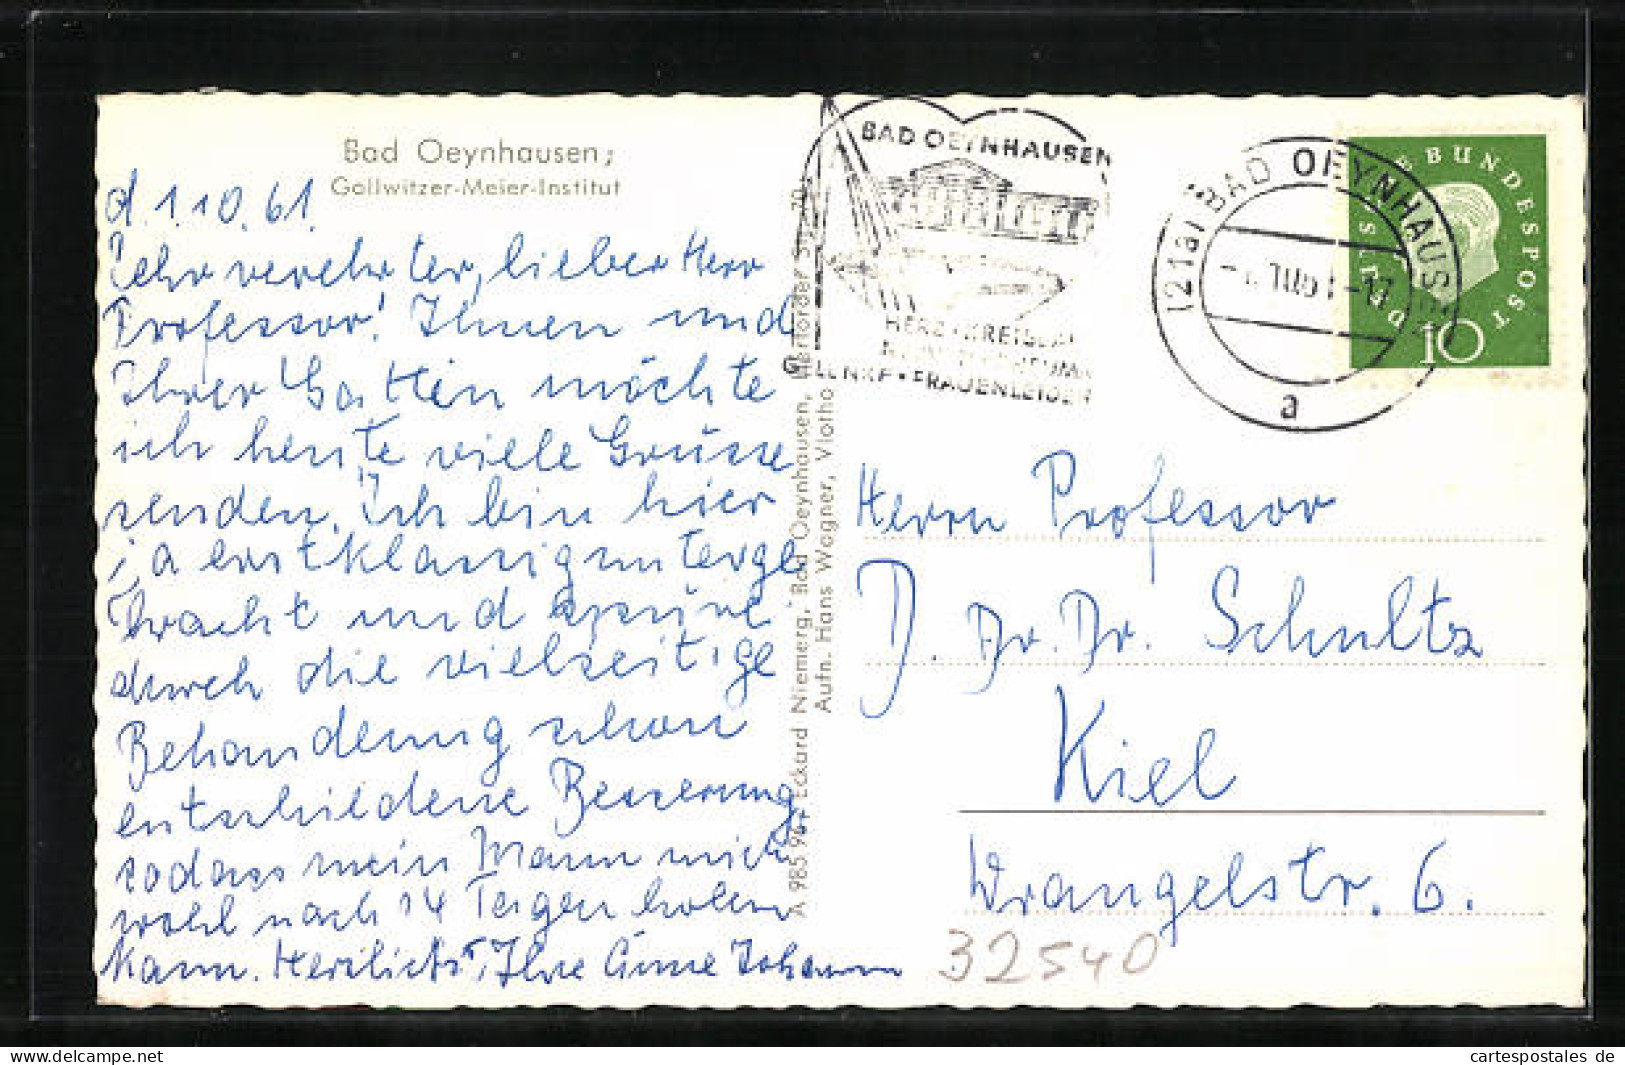 Bad Oeynhausen;
Gollwitzer-Meier-Institut
d. 1.10.61.
Sehr verehrter, lieber Herr
Professor! Ihnen und
Ihrer Gattin möchte
ich heute viele Grüsse
senden. Ich bin hier
ja erstklassig unterge
bracht und spüre
durch die vielseitige
Behandlung schon
entschiedene Besserung
sodass mein Mann mich
wohl nach 14 Tagen holen
kann. Herzlichst, Ihre Änne Johannn
A 985 962 Eckard Niemerg, Bad Oeynhausen, Herforder Str. 70
Aufn. Hans Wagner, Vlotho
BAD OEYNHAUSEN
HERZ · KREISLAUF
GELENKE · FRAUENLEIDEN
(21a) BAD OEYNHAUSEN
a
DEUTSCHE BUNDESPOST
10
Herrn Professor
D. Dr. Dr. Schultz
Kiel
Wrangelstr. 6.
32540
www.cartespostales-de.com
cartespostales de